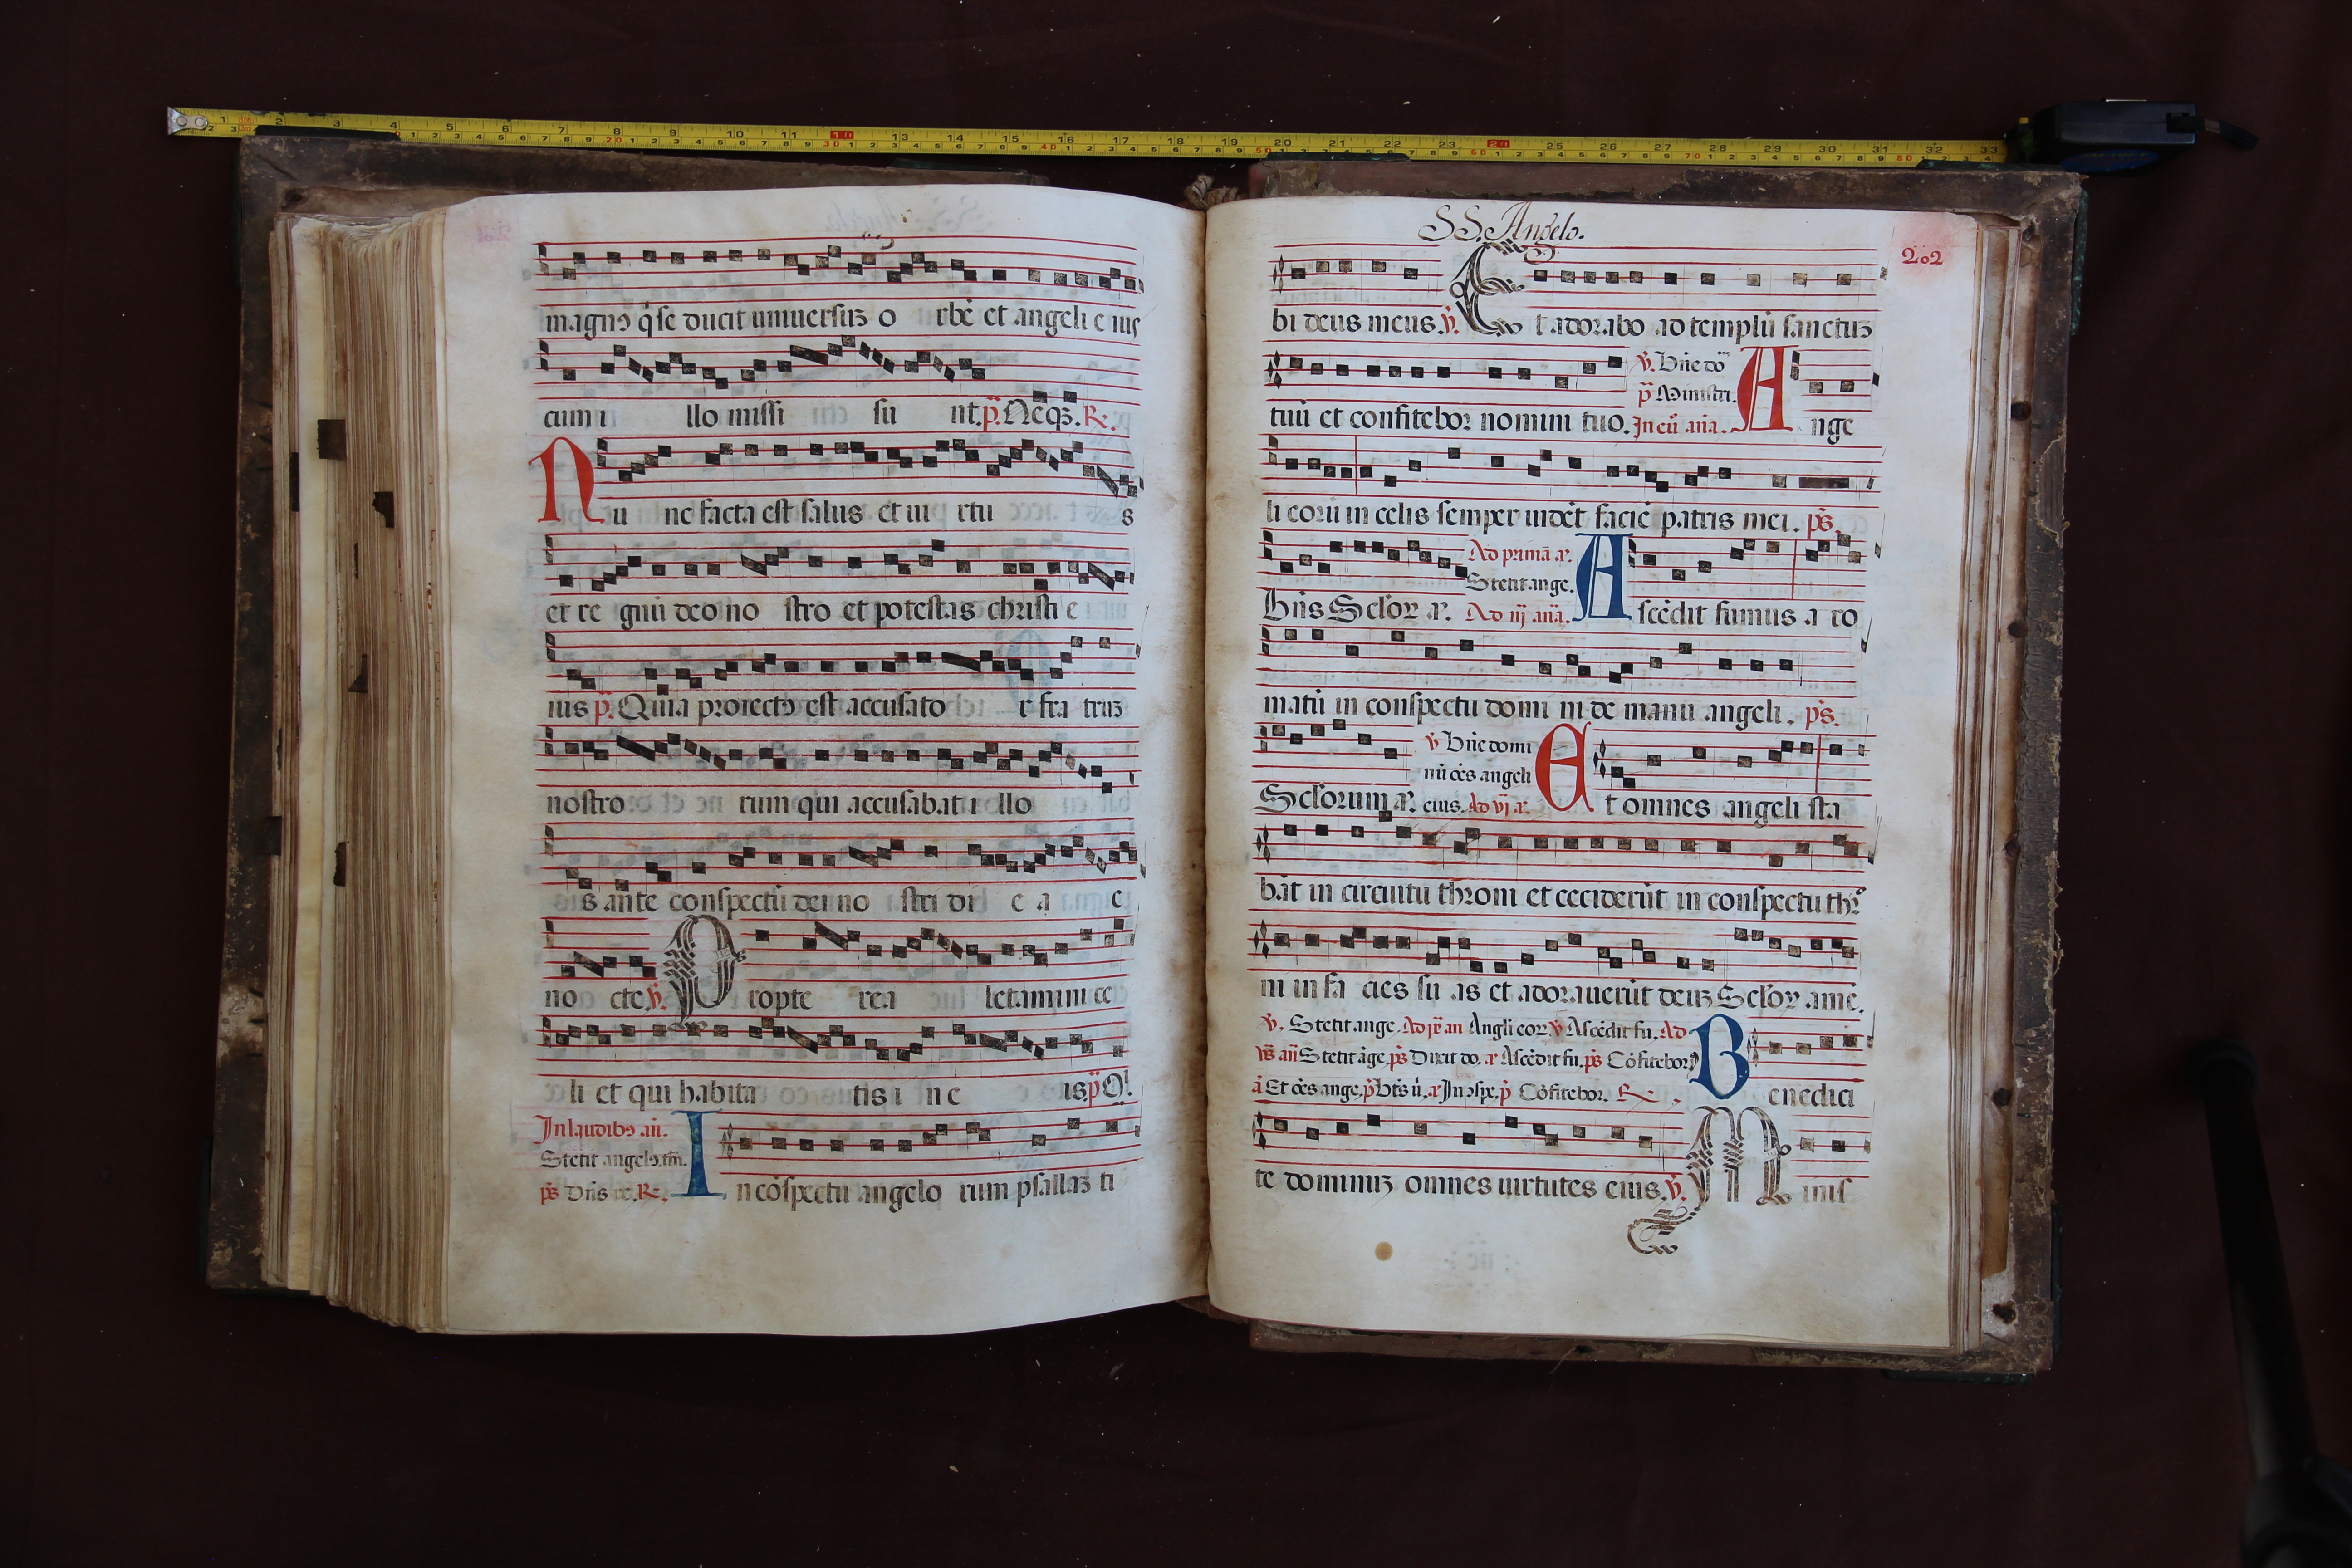 magnꝰ q̇ se ducit uniuersuꝫ o rbē et angeli e ius
cum i llo missi su nt. p̈. Neqꝫ. R.
Nu nc facta est salus et ui rtu s
et re gnū deo no stro et potestas christi e
ius p̈. Quia proiectꝰ est accusato r fra truꝫ
nostro rum qui accusabat i llo
s ante conspectū dei no stri di e a c
no cte. v̇. Propte rea letamini ce
li et qui habita tis i n e is. p̈ Q!.
In laudibꝰ an̄.
Stetit angelꝰ. tm̄.
ps̄ Dn̄s re. R.
In cōspectu angelo rum psallaꝫ ti
SS. Angelo.
202
bi deus meus. v̇. Et adorabo ad templū sanctuꝫ
tuū et confitebor nomini tuo. v̇. Bn̄e do
p̈ Ministri.
In eū. an̄a. Ange
li eorū in celis semper uidēt faciē patris mei. ps̄.
Bn̄s Sclōꝝ aꝛ. Ad primā aꝛ.
Stetit ange.
Ad iij an̄a. Ascēdit fumus a ro
matū in conspectu domi ni de manu angeli. ps̄.
Sclōrum aꝛ. v̇ Bn̄e domi
nū oēs angeli
eius. Ad vj aꝛ. Et omnes angeli sta
bāt in circuitu throni et ceciderūt in conspectu thꝛ
ni in fa cies su as et adorauerūt deuꝫ Sclōꝝ amē.
v̇. Stetit ange. Ad ix̄ an Angli eoꝝ v̇ Ascēdit fu. Ad
vs̄ an̄ Stetit āge. ps̄ Dixit do. aꝛ Ascēdit fu. ps̄ Cōfitebor
ā Et oēs ange. p̄ Bt̄s ū. aꝛ In ↄspe. p̄ Cōfitebor. R. Benedici
te dominuꝫ omnes uirtutes eius. v̇. Minis